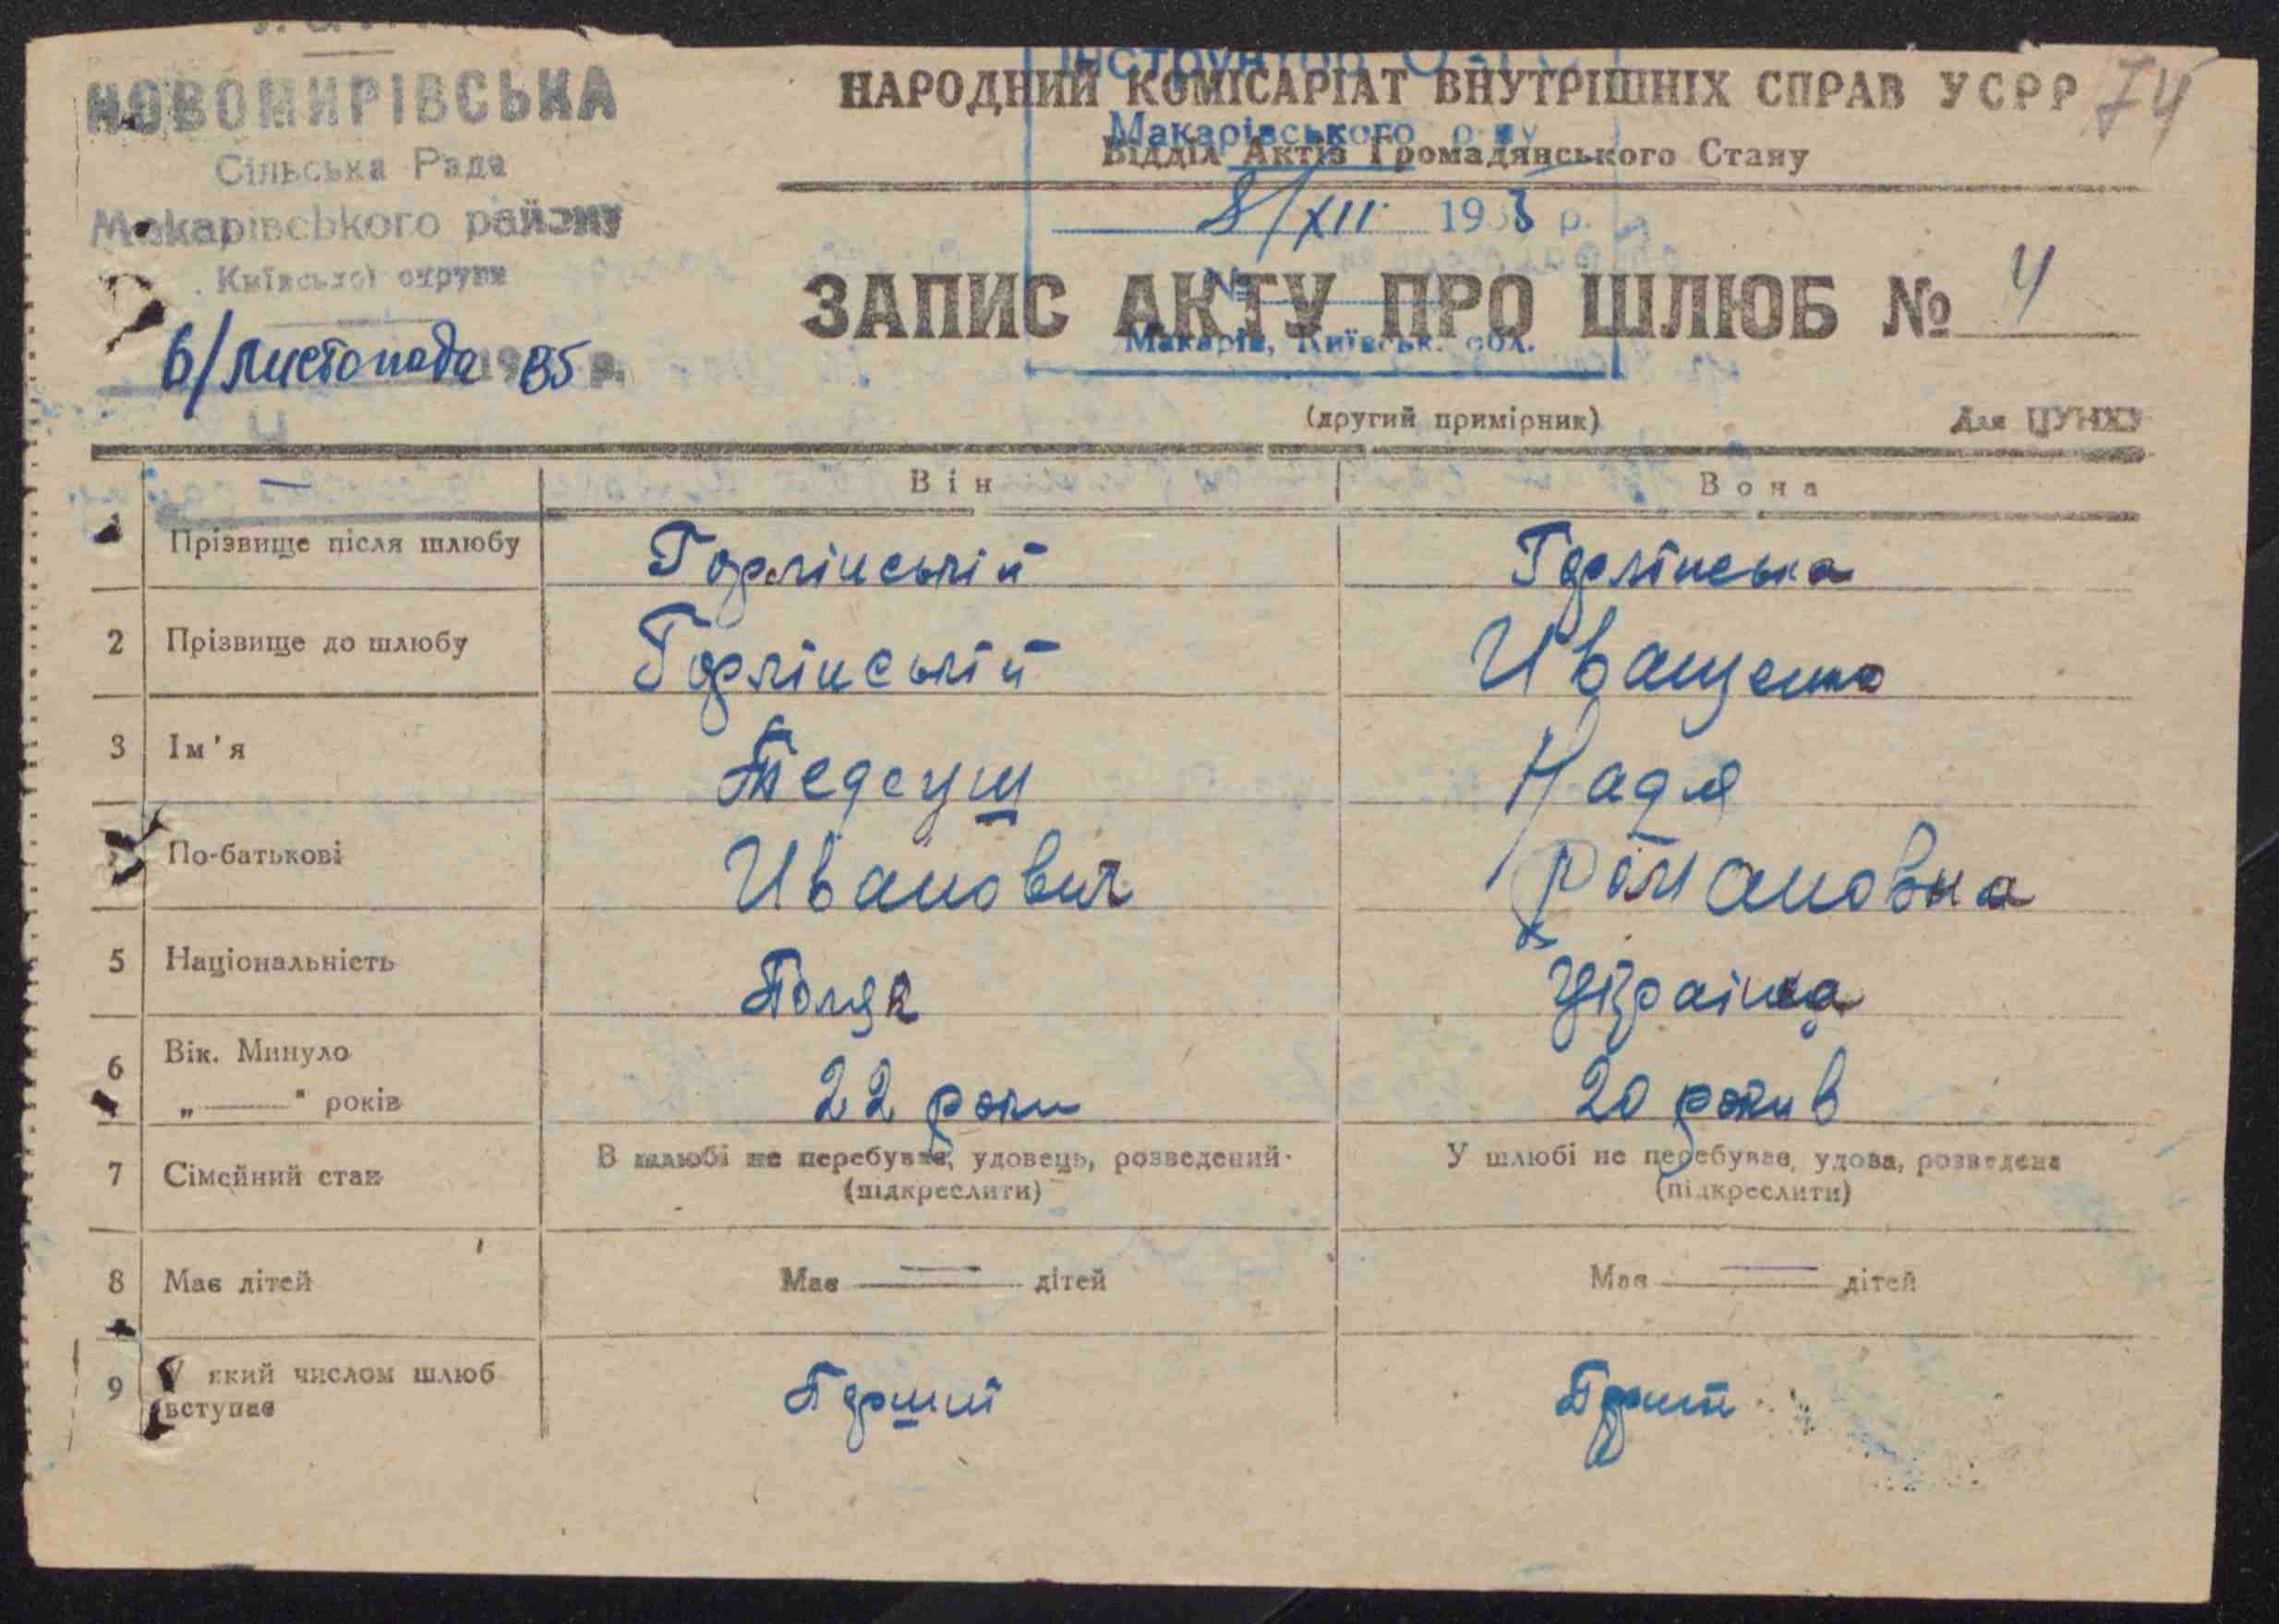 НОВОМИРІВСЬКА
Сільська Рада
Макарівського району
Київської округи
6/листопада 1935 р.
НАРОДНИЙ КОМІСАРІАТ ВНУТРІШНІХ СПРАВ УСРР
74
Інструктор
Макарівського р-ну
Відділ Актів Громадянського Стану
8/XII 193 р.
№
ЗАПИС АКТУ ПРО ШЛЮБ № 4
Макарів, Київськ. обл.
(другий примірник)
Для ЦУНХУ
Він
Вона
1 Прізвище після шлюбу Горлінський Горлінська
2 Прізвище до шлюбу Горлінський Иващенко
3 Ім'я Тедеуш Надя
По-батькові Иванович Романовна
5 Національність Поляк Українка
6 Вік. Минуло
„——" років 22 роки 20 рокив
7 Сімейний стан В шлюбі не перебуває, удовець, розведений. У шлюбі не перебуває, удова, розведена
(підкреслити) (підкреслити)
8 Має дітей Має — дітей Має — дітей
9 У який числом шлюб
вступає